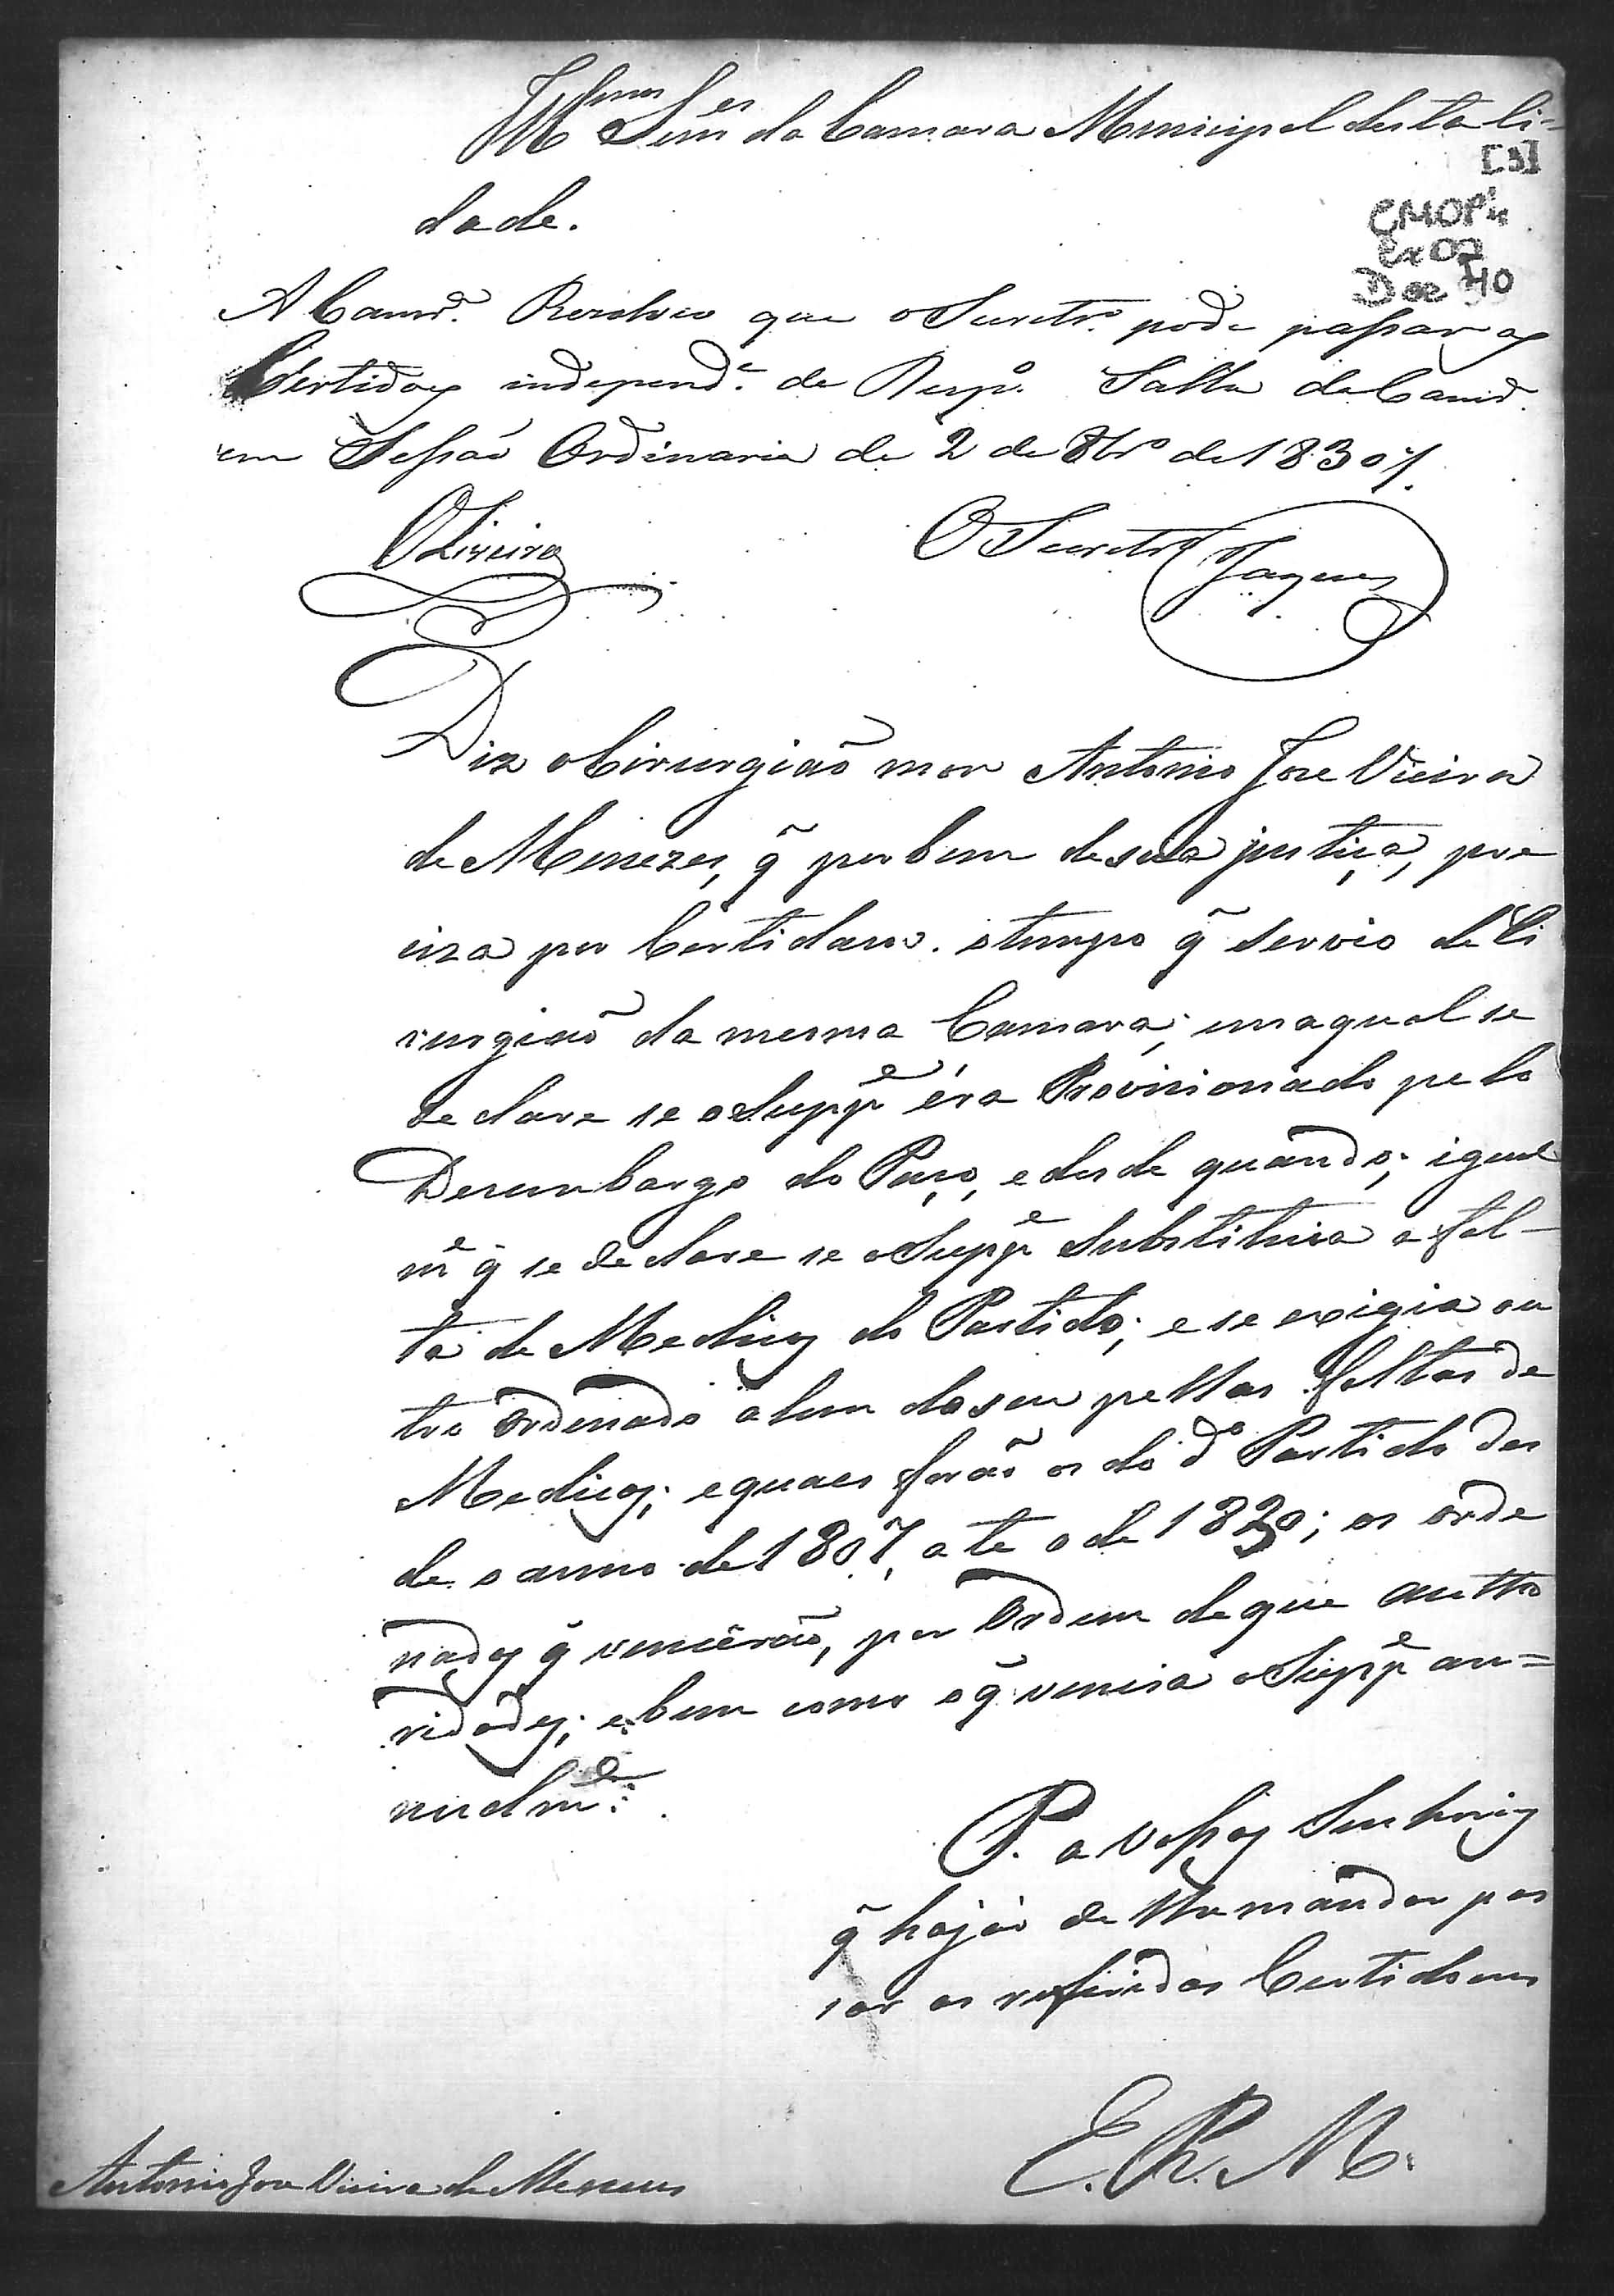 Illmos Senres da Camara Municipal desta Ci-
[3]
dade.
CMOP
Cx 07
Doc 40
A Camrª. Resolveo que o Secretrº. pode passar as
Certidoẽs independ.e de Desp.º Salla da Camrª.
em Sessaõ Ordinaria de 2 de 8br.º de 1830.
Oliveira O Secretrº Jaques
Diz o Cirurgiaõ mor Antonio Joze Vieira
de Menezes, q̃ por bem de sua justiça, pre
ciza por Certidam. o tempo q̃ servio de Ci
rurgiaõ da mesma Camara; em a qual se
declare se o Suppe éra Provisionado pelo
Desembargo do Paço, e desde quando; igual
me q̃ se declare se o Suppe substituia a fal-
ta de Medicos do Partido; e se exigia ou
tro Ordenado alem do seu pellas faltas de
Medicos; e quaes foraõ os do dº Partido des
de o anno de 1807, ate o de 1830; os orde
nados q̃ venceraõ, por Ordem de que autho
ridades; e bem como o q̃ vencia o Suppe an=
nualme.
P. a Vossas Senhorias
q̃ hajaõ de lhe mandar pas
sar as referidas Certidoens
E. R. M.
Antonio Joze Vieira de Menezes